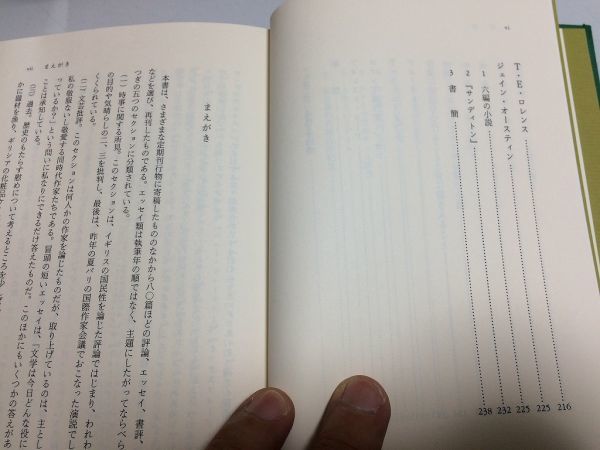 vi
T・E・ロレンス 216
ジェイン・オースティン 225
1 六編の小説 225
2 『サンディトン』 232
3 書簡 238
vii まえがき
まえがき
本書は、さまざまな定期刊行物に寄稿したもののなかから八〇篇ほどの評論、エッセイ、書評、
などを選び、再刊したものである。エッセイ類は執筆年の順ではなく、主題にしたがってならべら
つぎの五つのセクションに分類されている。
(一) 時事に関する所見。このセクションは、イギリスの国民性を論じた評論ではじまり、われわ
の目的や気晴らしの二、三を批判し、最後は、昨年の夏パリの国際作家会議でおこなった演説でし
くくられている。
(二) 文芸批評。このセクションは何人かの作家を論じたものだが、取り上げているのは、主とし
私の敬服ないし敬愛する同時代作家たちである。冒頭の短いエッセイは、『文学は今日どんな役に
っているか?』という問いに私なりにできるだけ答えたものだ。このほかにもいくつかの答えがあ
ことは承知している。
(三) 過去。歴史のもたらす慰めについて考えるところを少
かに題材を漁り、ギリシアの化粧品